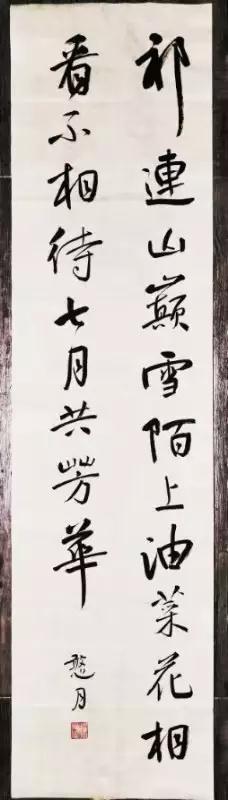 祁連山巔雪陌上油菜花相
看不相待七月共芳華
憨月